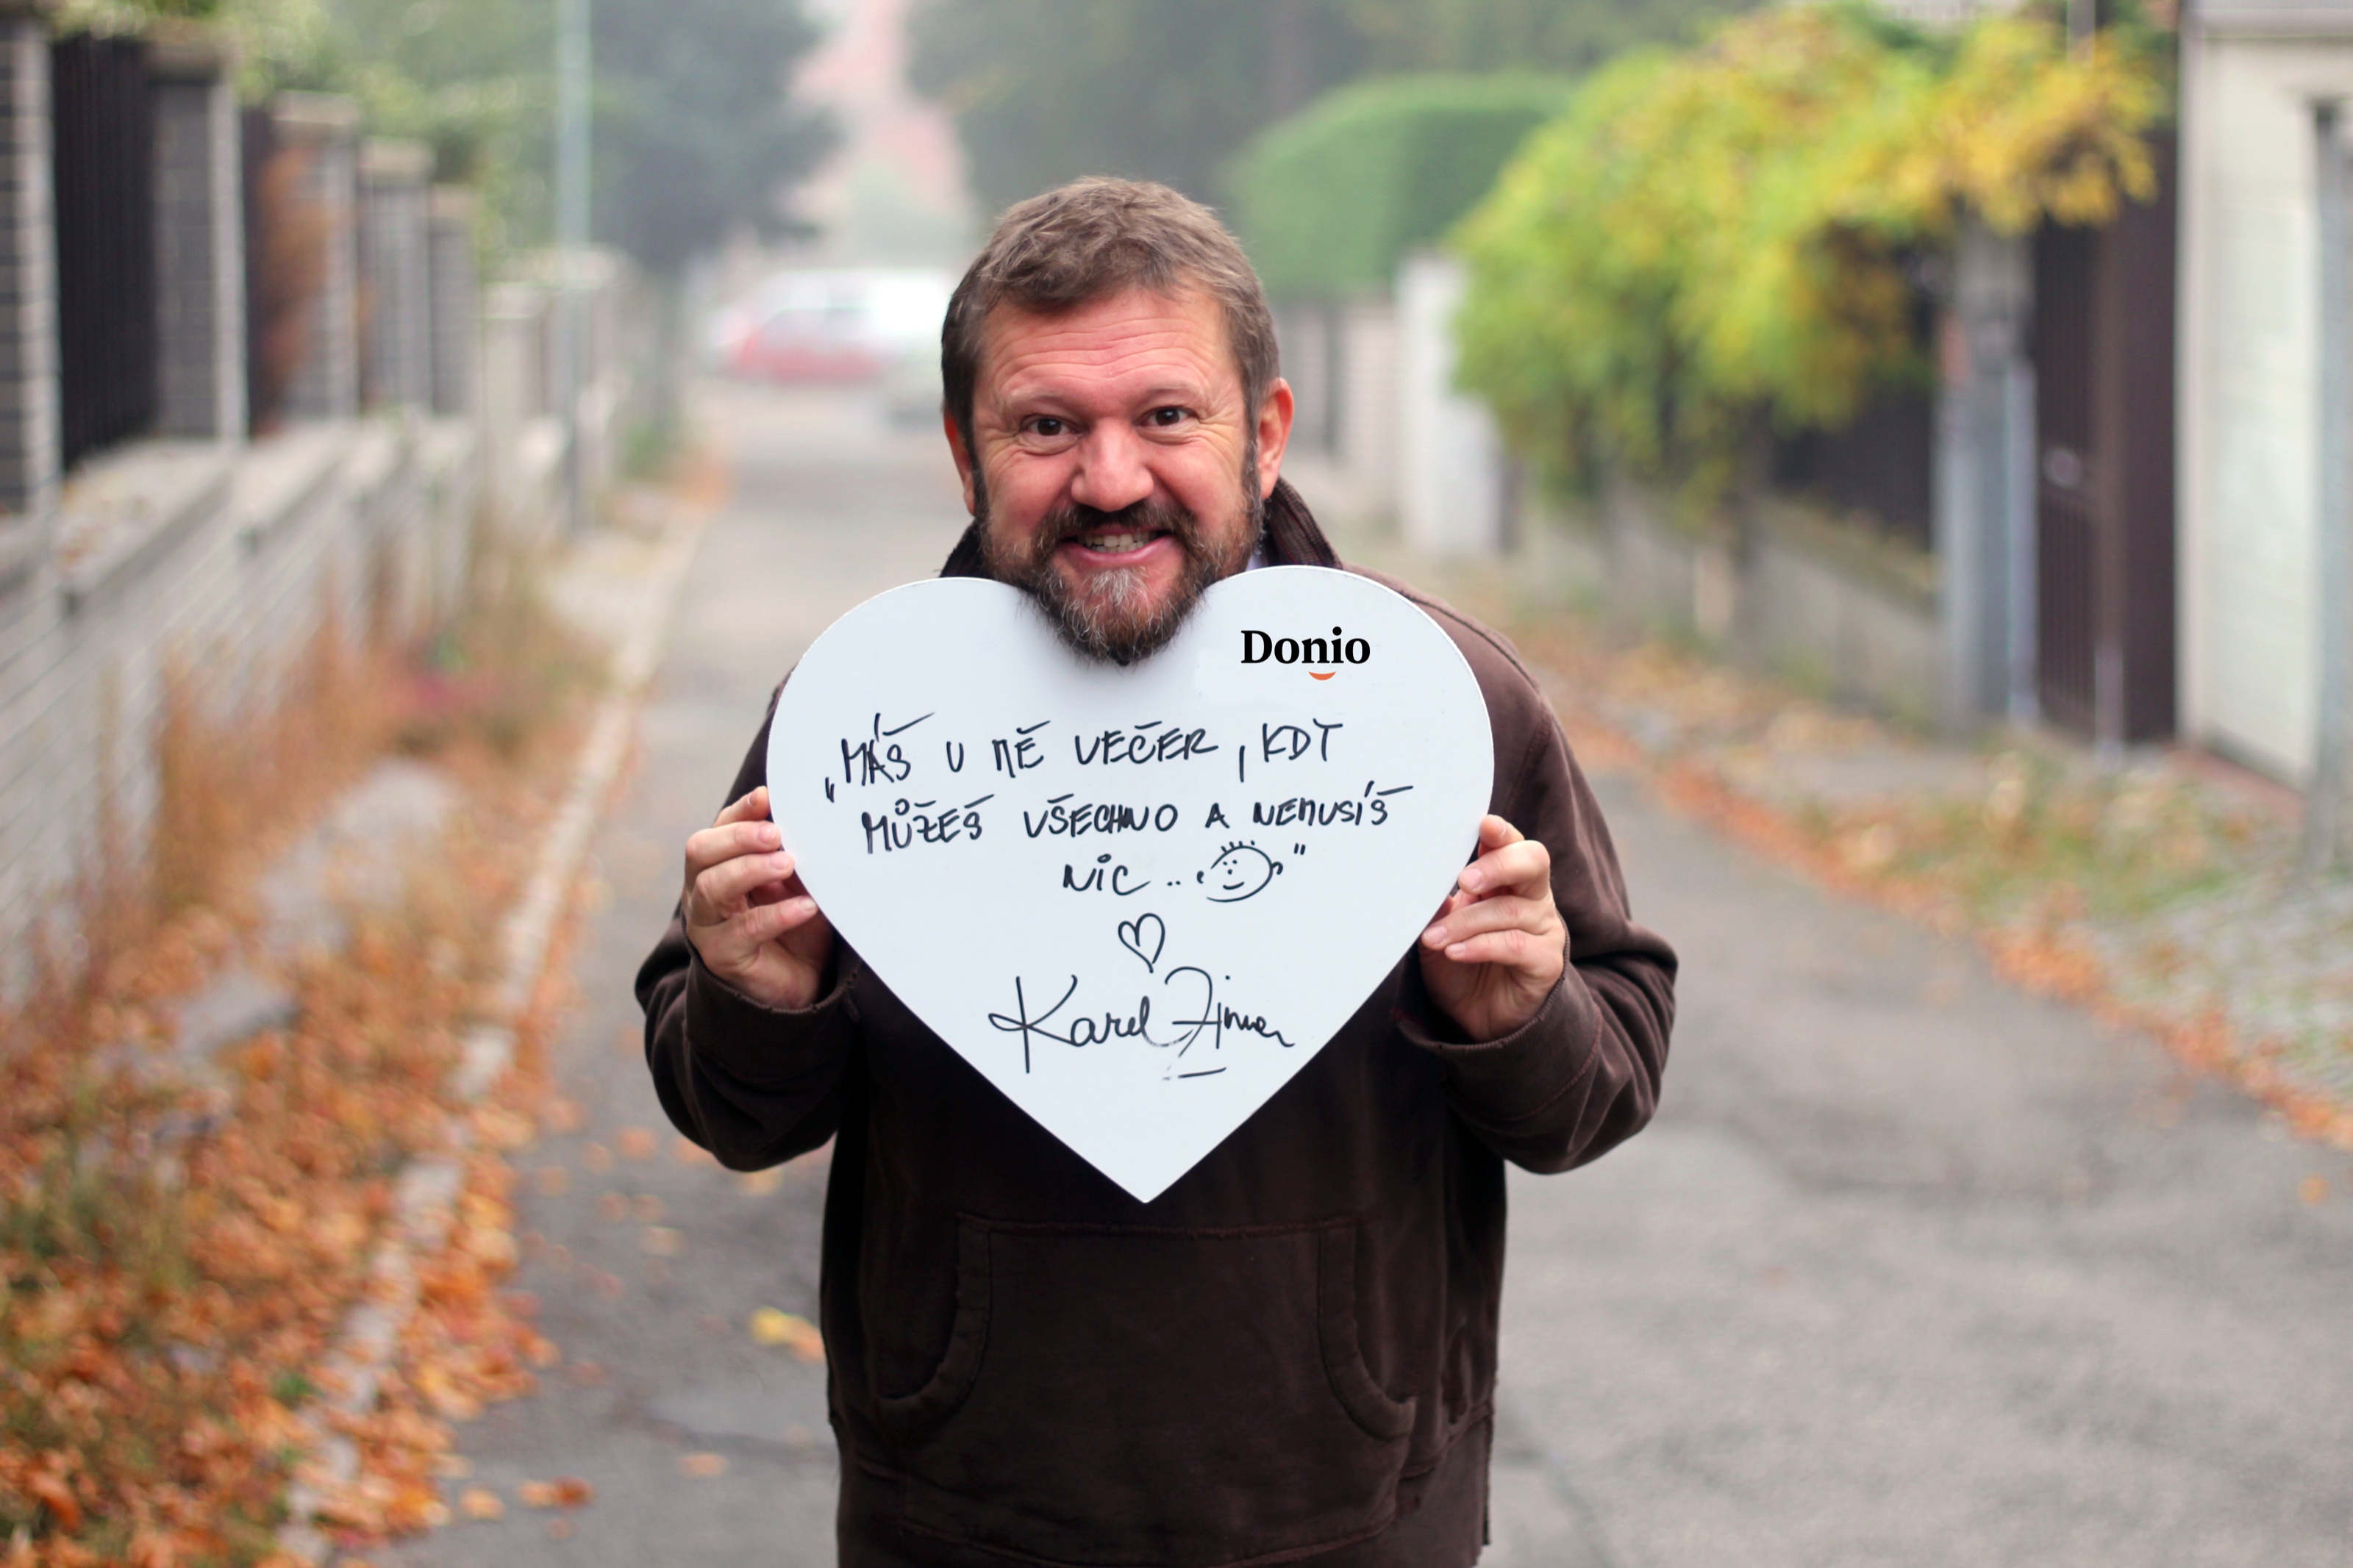 Donio
„MÁŠ U MĚ VEČER, KDY
MŮŽEŠ VŠECHNO A NEMUSÍŠ
NIC.. "
Karel Zima